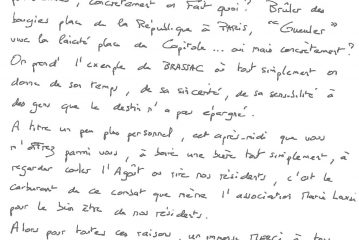 concrètement on fait quoi ? Brûler des
bougies place de la République à PARIS, "Gueuler"
vive la laïcité place du Capitole... oui mais concrètement ?
On prend l'exemple de BRASSAC où tout simplement on
donne de son temps, de sa sincérité, de sa sensibilité à
des gens que le destin n'a pas épargné.
A titre un peu plus personnel, cet après-midi que vous
m'offrez parmi vous, à boire une bière tout simplement, à
regarder couler l'Agoût ou rire nos résidents, c'est le
carburant de ce combat que mène l'association Marie Laxou
pour le bien être de nos résidents.
Alors pour toutes ces raisons, un immense MERCI à tous